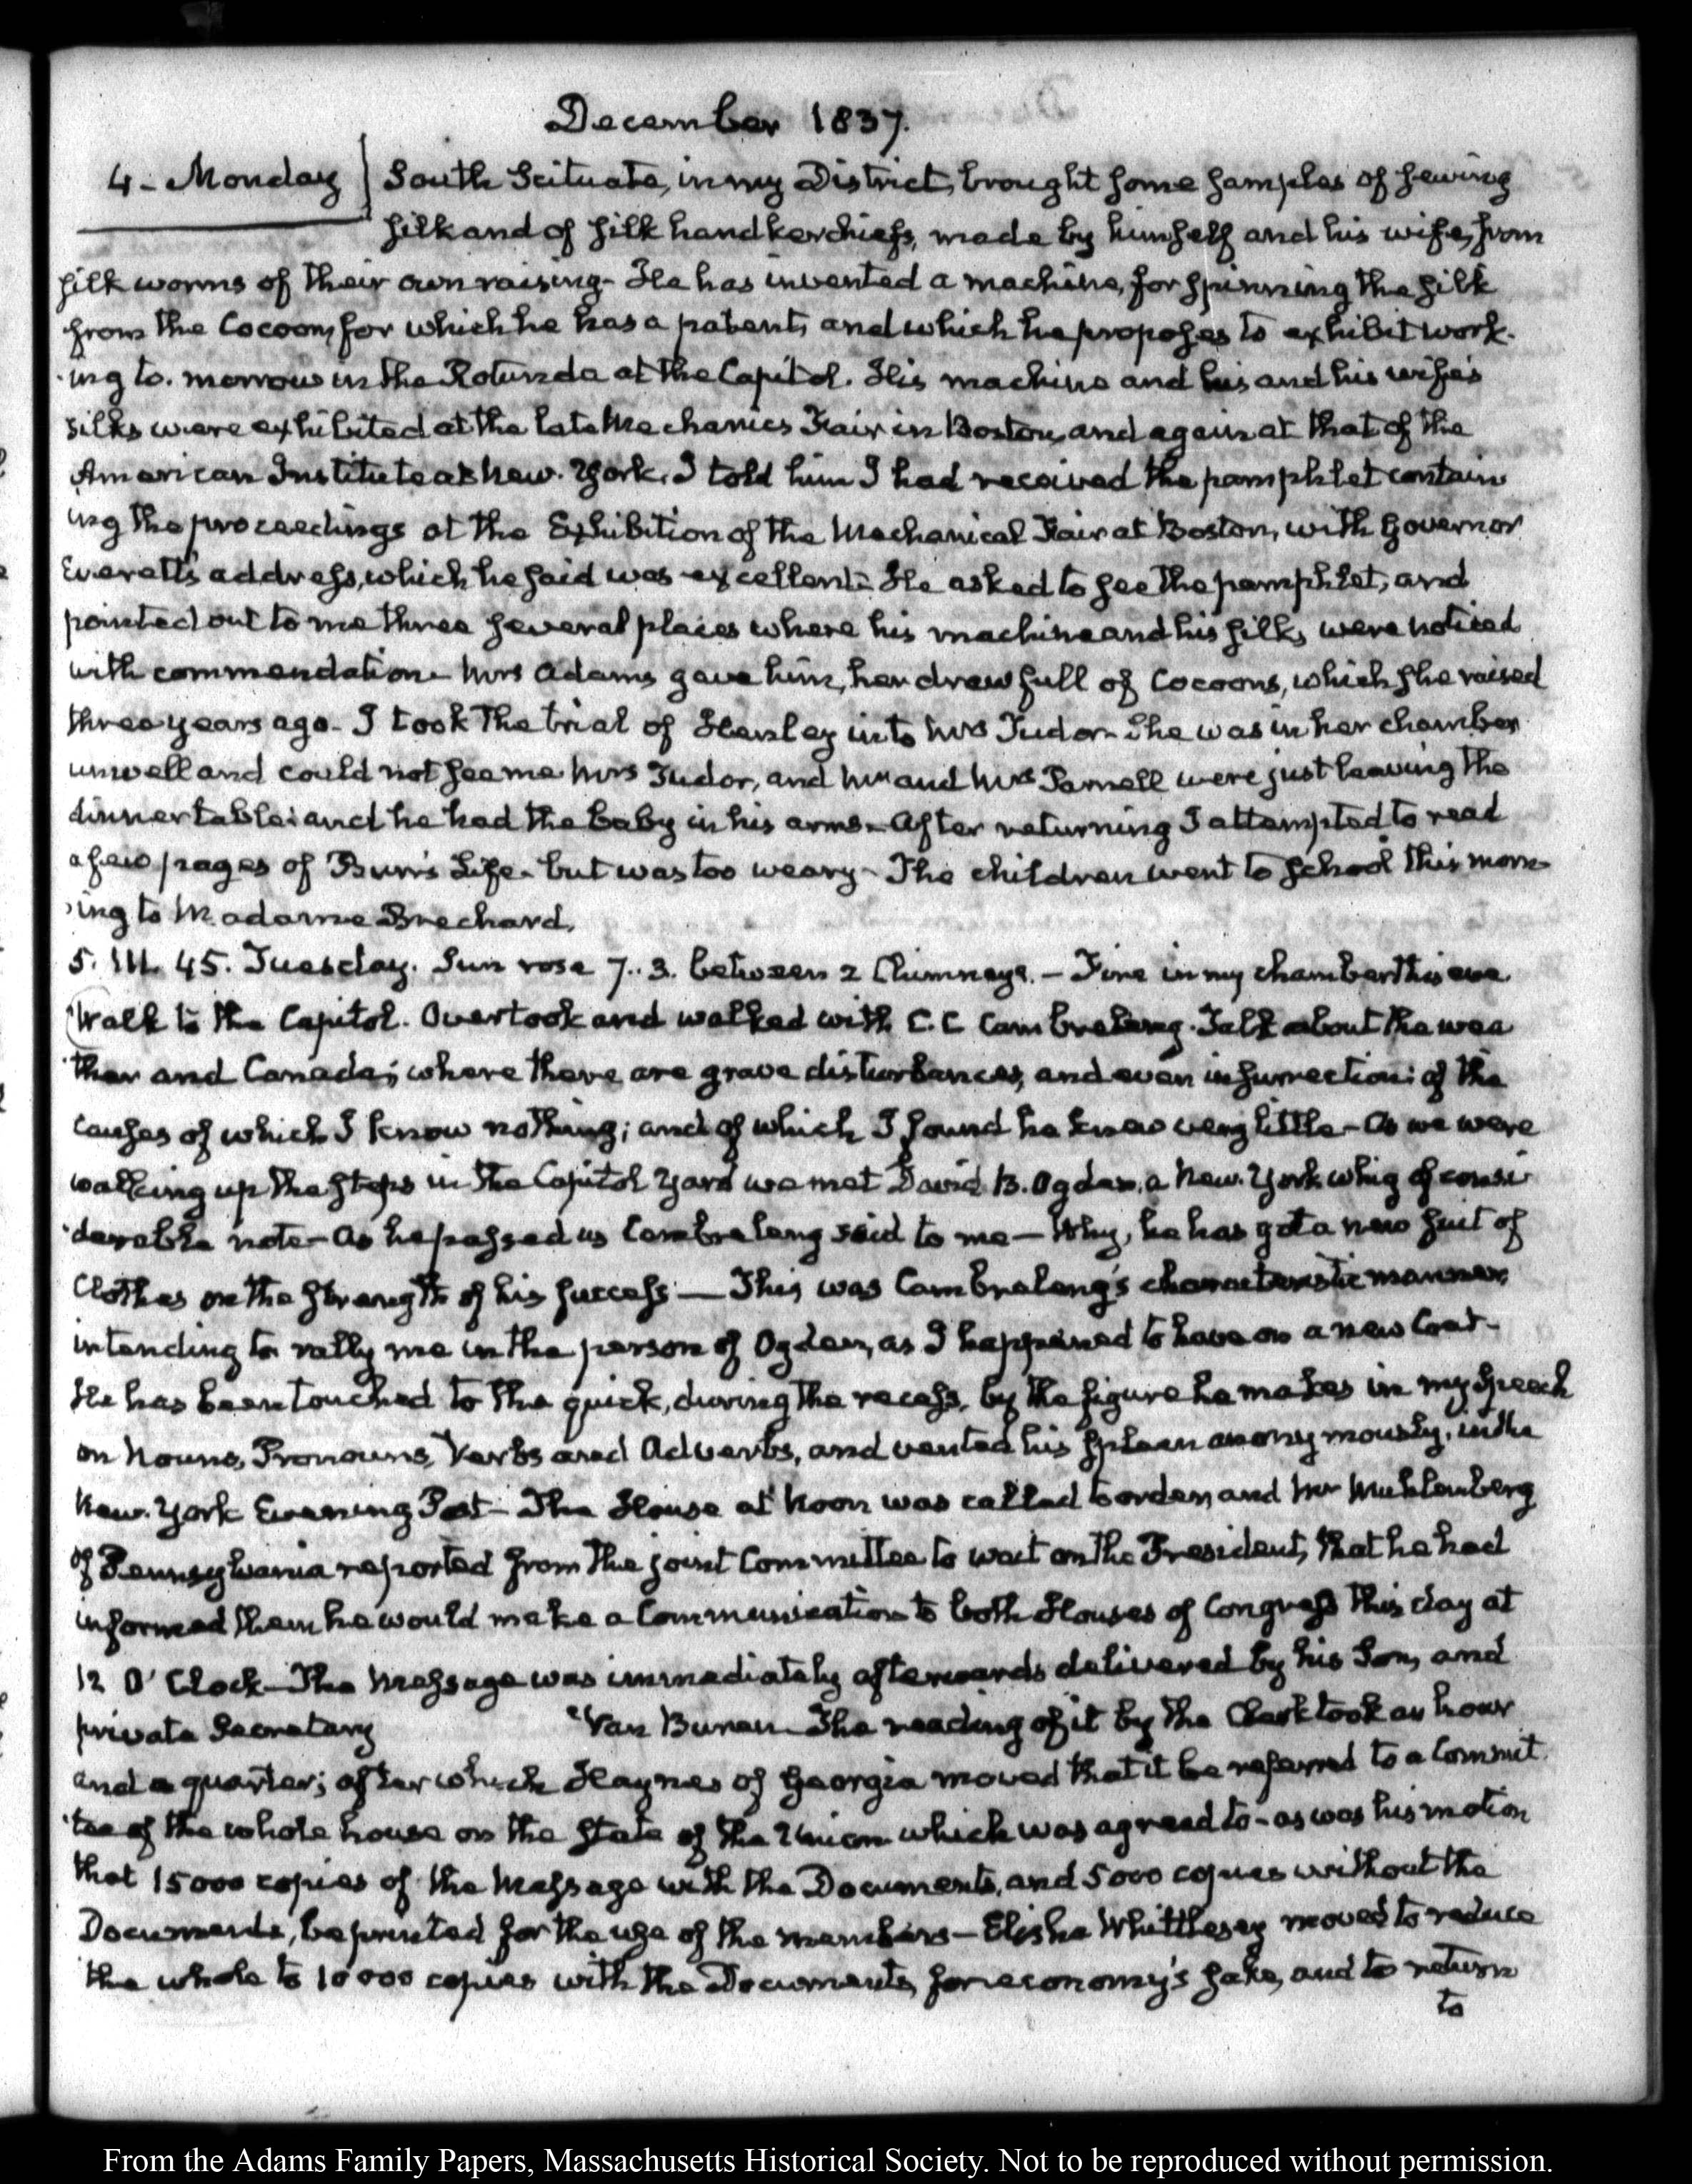 December 1837.
4 - Monday South Scituate, in my District, brought some samples of sewing
silk and of silk handkerchiefs, made by himself and his wife, from
silk worms of their own raising - He has invented a machine, for spinning the silk
from the Cocoon, for which he has a patent, and which he proposes to exhibit work-
-ing to-morrow in the Rotunda at the Capitol. His machine and his and his wife's
silks were exhibited at the late Mechanics Fair in Boston, and again at that of the
American Institute at New-York. I told him I had received the pamphlet contain
ing the proceedings at the Exhibition of the Mechanical Fair at Boston, with Governor
Everett's address, which he said was excellent - He asked to see the pamphlet, and
pointed out to me three several places where his machine and his silks were noticed
with commendation - Mrs Adams gave him, her draw full of Cocoons, which she raised
three years ago - I took the trial of Henley into Mrs Tudor - She was in her chamber
unwell and could not see me Mrs Tudor, and Mr and Mrs Parnell were just leaving the
dinner table: and he had the baby in his arms - After returning I attempted to read
a few pages of Burr's Life - but was too weary - The children went to School this morn-
-ing to Madame Brechard.
5. III. 45. Tuesday. Sun rose 7..3. between 2 Chimneys. - Fire in my chamber this eve
Walk to the Capitol. Overtook and walked with C. C Cambreleng. Talk about the wea
-ther and Canada; where there are grave disturbances, and even insurrection: of the
causes of which I know nothing; and of which I found he knew very little - As we were
walking up the steps in the Capitol Yard we met David B. Ogden, a New-York whig of consi
-derable note - As he passed us Cambreleng said to me - Why, he has got a new suit of
Clothes on the strength of his success - This was Cambreleng's characteristic manner
intending to rally me in the person of Ogden, as I happened to have on a new Coat -
He has been touched to the quick, during the recess, by the figure he makes in my Speech
on Nouns, Pronouns, Verbs and Adverbs, and vented his spleen anonymously, in the
New-York Evening Post - The House at Noon was called to order, and Mr Muhlenberg
of Pennsylvania reported from the joint Committee to wait on the President, that he had
informed them he would make a Communication to both Houses of Congress this day at
12 O'Clock - The Message was immediately afterwards delivered by his Son, and
private Secretary Van Buren - The reading of it by the Clerk took an hour
and a quarter; after which Haynes of Georgia moved that it be referred to a Commit
-tee of the whole house on the State of the Union which was agreed to - as was his motion
that 15000 copies of the Message with the Documents, and 5000 copies without the
Documents, be printed for the use of the members - Elisha Whittlesey moved to reduce
the whole to 10000 copies with the Documents, for economy's sake, and to return
to
From the Adams Family Papers, Massachusetts Historical Society. Not to be reproduced without permission.